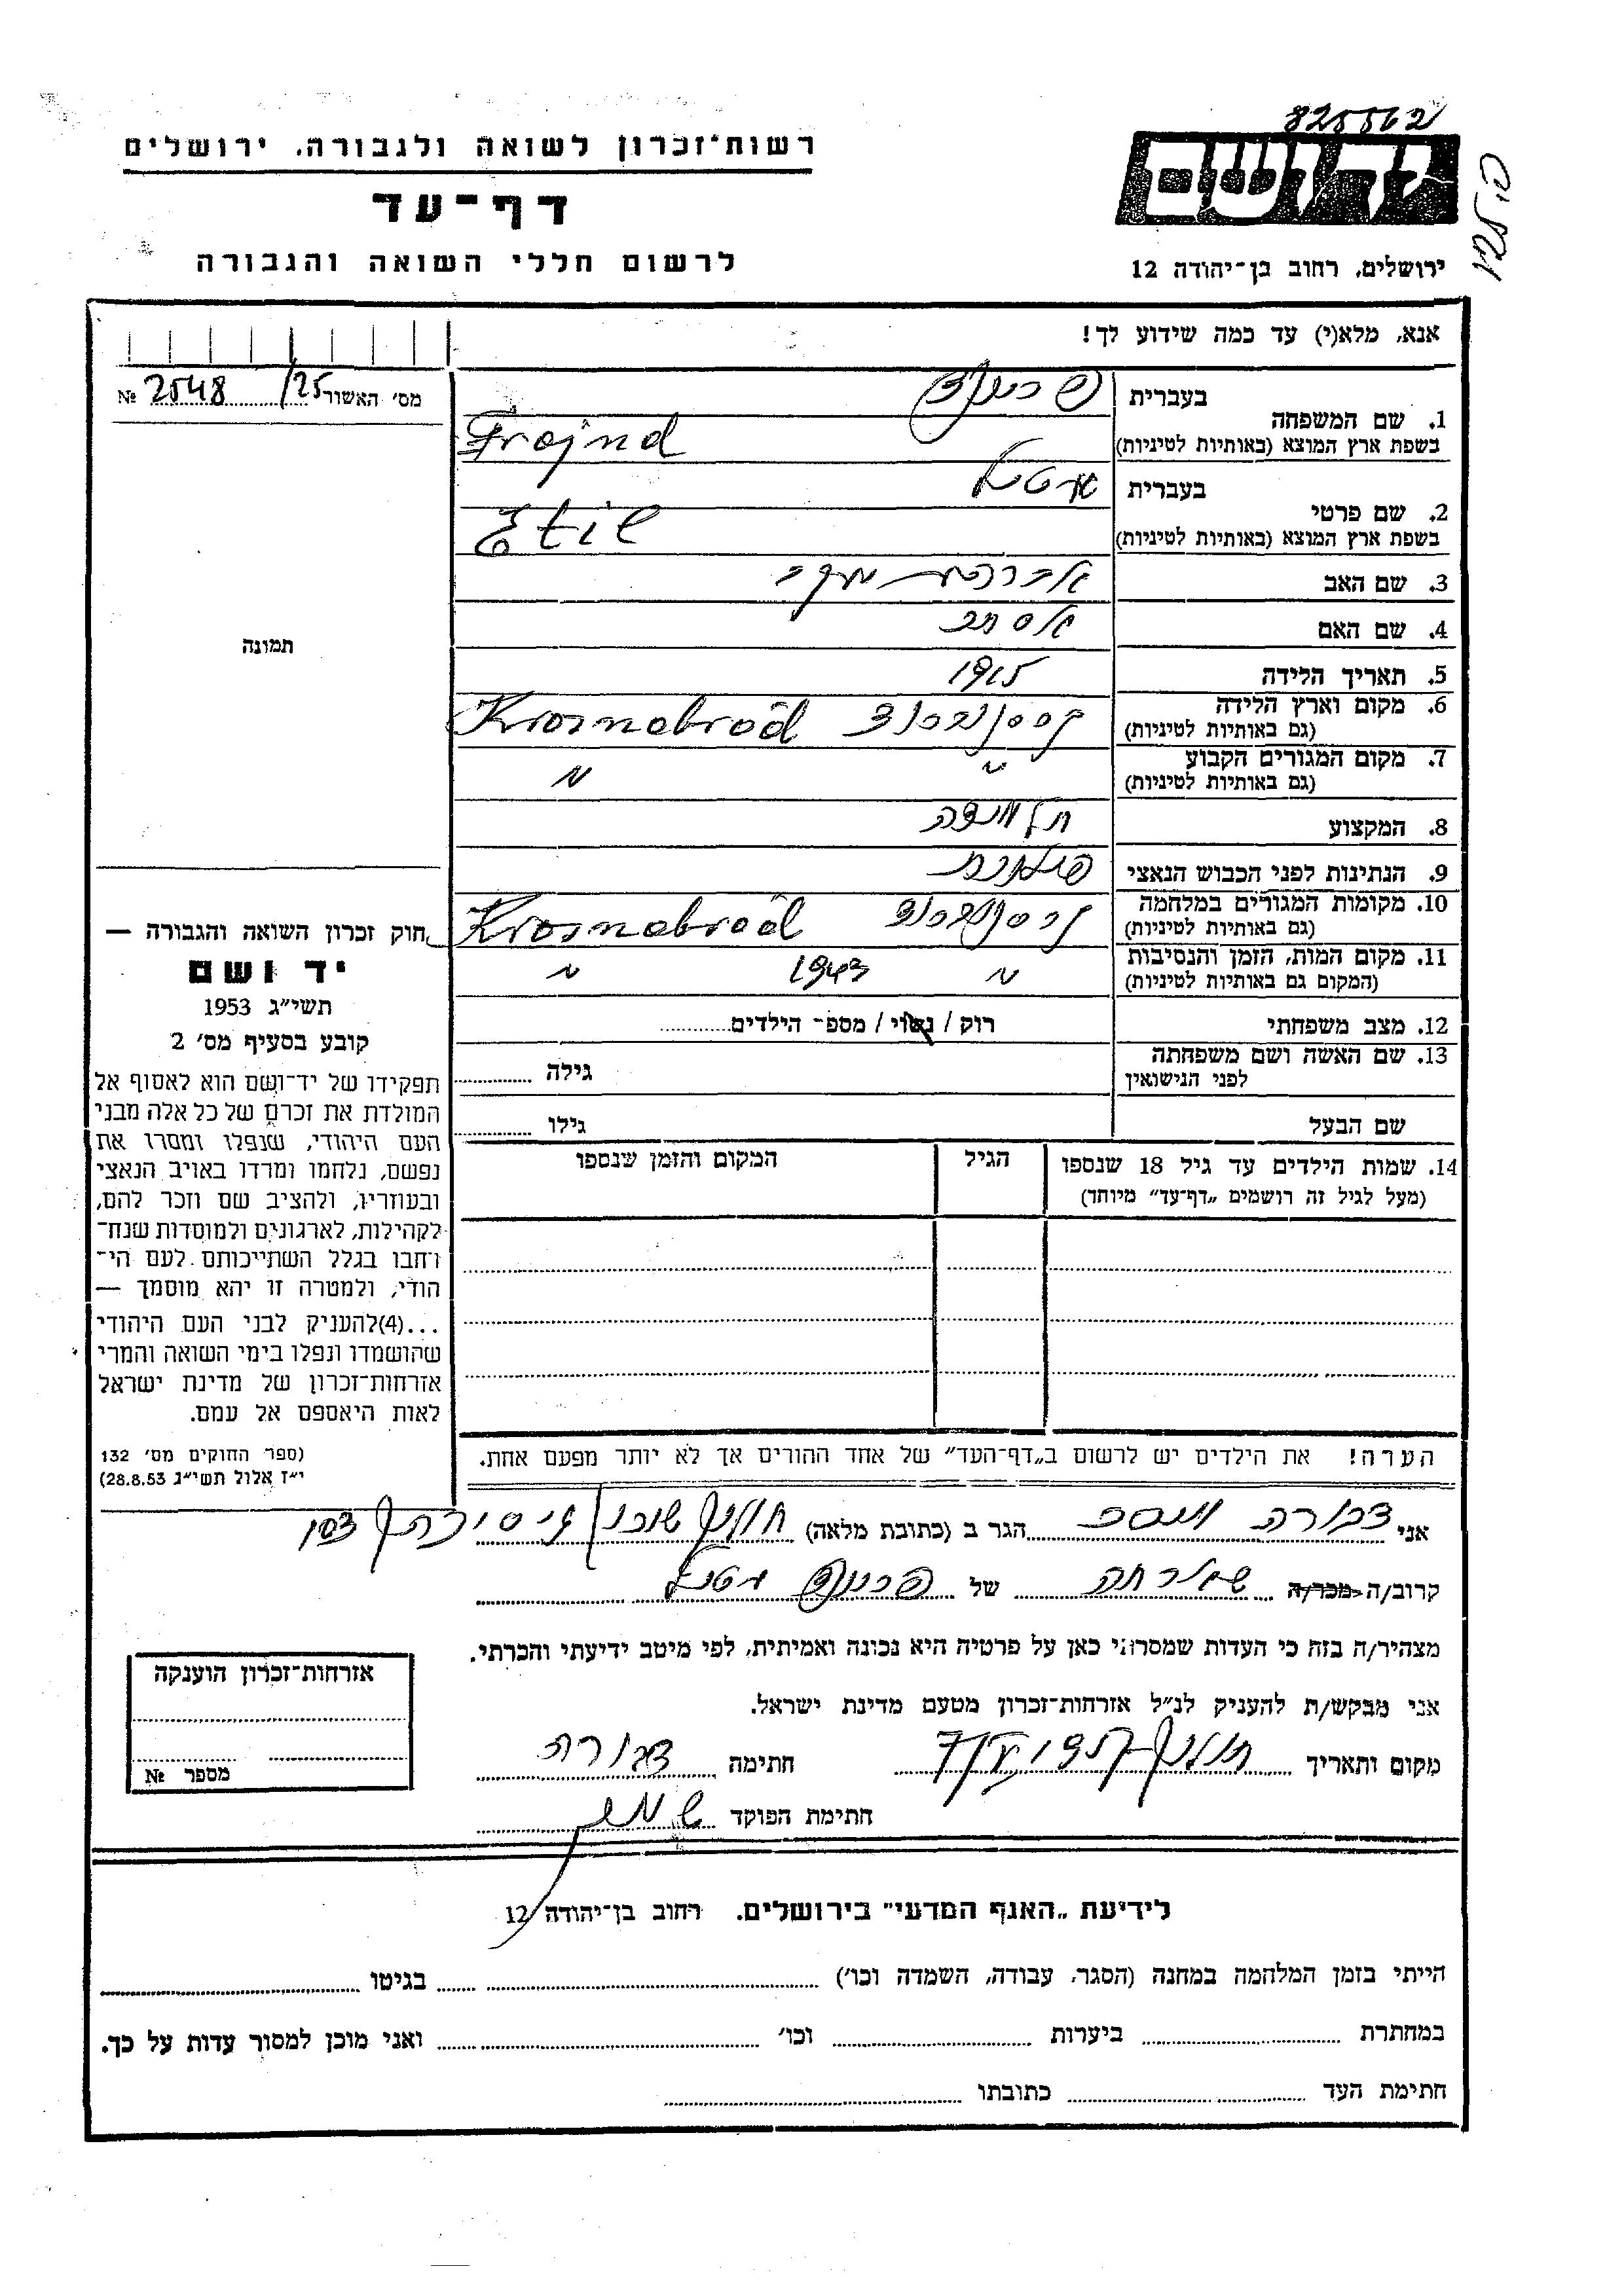 825562
רשות־זכרון לשואה ולגבורה, ירושלים
יד ושם
דף־עד
לרשום חללי השואה והגבורה
ירושלים, רחוב בן־יהודה 12
אנא, מלא(י) עד כמה שידוע לך!
מס׳ האשור 25/ 2548 №
1. שם המשפחה
בעברית פרוינד
בשפת ארץ המוצא (באותיות לטיניות) Frojnd
2. שם פרטי
בעברית אטיל
בשפת ארץ המוצא (באותיות לטיניות) Etil
3. שם האב אברהם יעקב
4. שם האם אסתר
5. תאריך הלידה 1915
6. מקום וארץ הלידה
(גם באותיות לטיניות) קרסנוברוד Krosnobrod
7. מקום המגורים הקבוע
(גם באותיות לטיניות) " "
8. המקצוע
9. הנתינות לפני הכבוש הנאצי פולנית
10. מקומות המגורים במלחמה
(גם באותיות לטיניות) קרסנוברוד Krosnobrod
11. מקום המות, הזמן והנסיבות
(המקום גם באותיות לטיניות) " 1943 "
12. מצב משפחתי רוק / נשוי / מספ־ הילדים
13. שם האשה ושם משפחתה
לפני הנישואין גילה
שם הבעל גילו
14. שמות הילדים עד גיל 18 שנספו הגיל המקום והזמן שנספו
(מעל לגיל זה רושמים „דף־עד” מיוחד)
הערה! את הילדים יש לרשום ב„דף־העד” של אחד ההורים אך לא יותר מפעם אחת.
תמונה
חוק זכרון השואה והגבורה —
יד ושם
תשי״ג 1953
קובע בסעיף מס׳ 2
תפקידו של יד־ושם הוא לאסוף אל
המולדת את זכרם של כל אלה מבני
העם היהודי, שנפלו ומסרו את
נפשם, נלחמו ומרדו באויב הנאצי
ובעוזריו, ולהציב שם וזכר להם,
לקהילות, לארגונים ולמוסדות שנח־
רחבו בגלל השתייכותם לעם הי־
הודי, ולמטרה זו יהא מוסמך —
...(4)להעניק לבני העם היהודי
שהושמדו ונפלו בימי השואה והמרי
אזרחות־זכרון של מדינת ישראל
לאות היאספם אל עמם.
(ספר החוקים מס׳ 132
י״ז אלול תשי״ג 28.8.53)
אני דבורה הגר ב (כתובת מלאה) חולון שיכון
קרוב/ה מכר/ה של פרוינד אטיל
מצהיר/ה בזה כי העדות שמסרתי כאן על פרטיה היא נכונה ואמיתית, לפי מיטב ידיעתי והכרתי.
אני מבקש/ת להעניק לנ״ל אזרחות־זכרון מטעם מדינת ישראל.
מקום ותאריך חולון חתימה דבורה
חתימת הפוקד
אזרחות־זכרון הוענקה
מספר №
לידיעת „האגף המדעי” בירושלים. רחוב בן־יהודה 12
הייתי בזמן המלחמה במחנה (הסגר, עבודה, השמדה וכו׳) בגיטו
במחתרת ביערות וכו׳ ואני מוכן למסור עדות על כך.
חתימת העד כתובתו